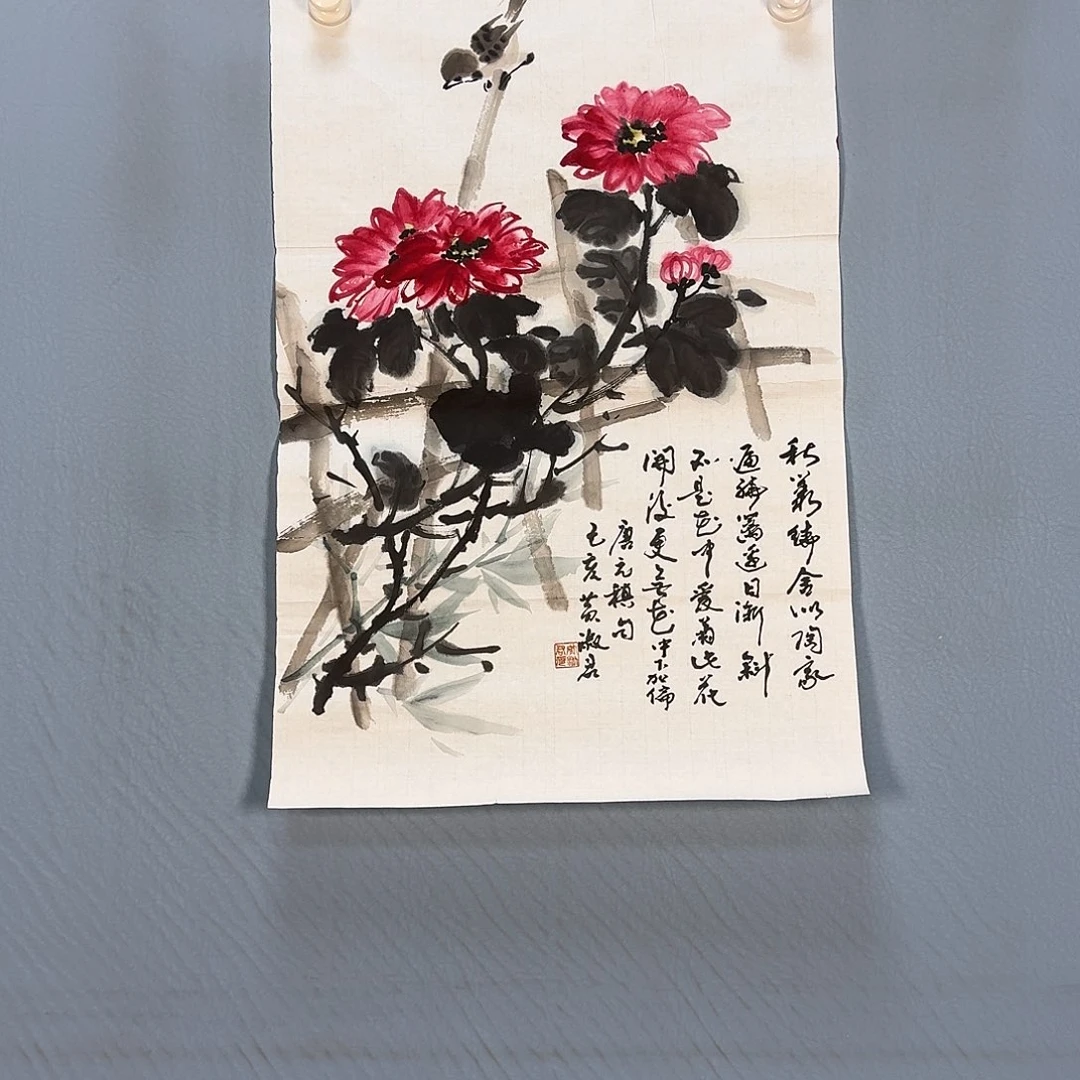 秋叢繞舍似陶家
遍繞籬邊日漸斜
不是花中愛菊此花
開後更無花 中下加偏
唐元稹句
己亥黃淑君